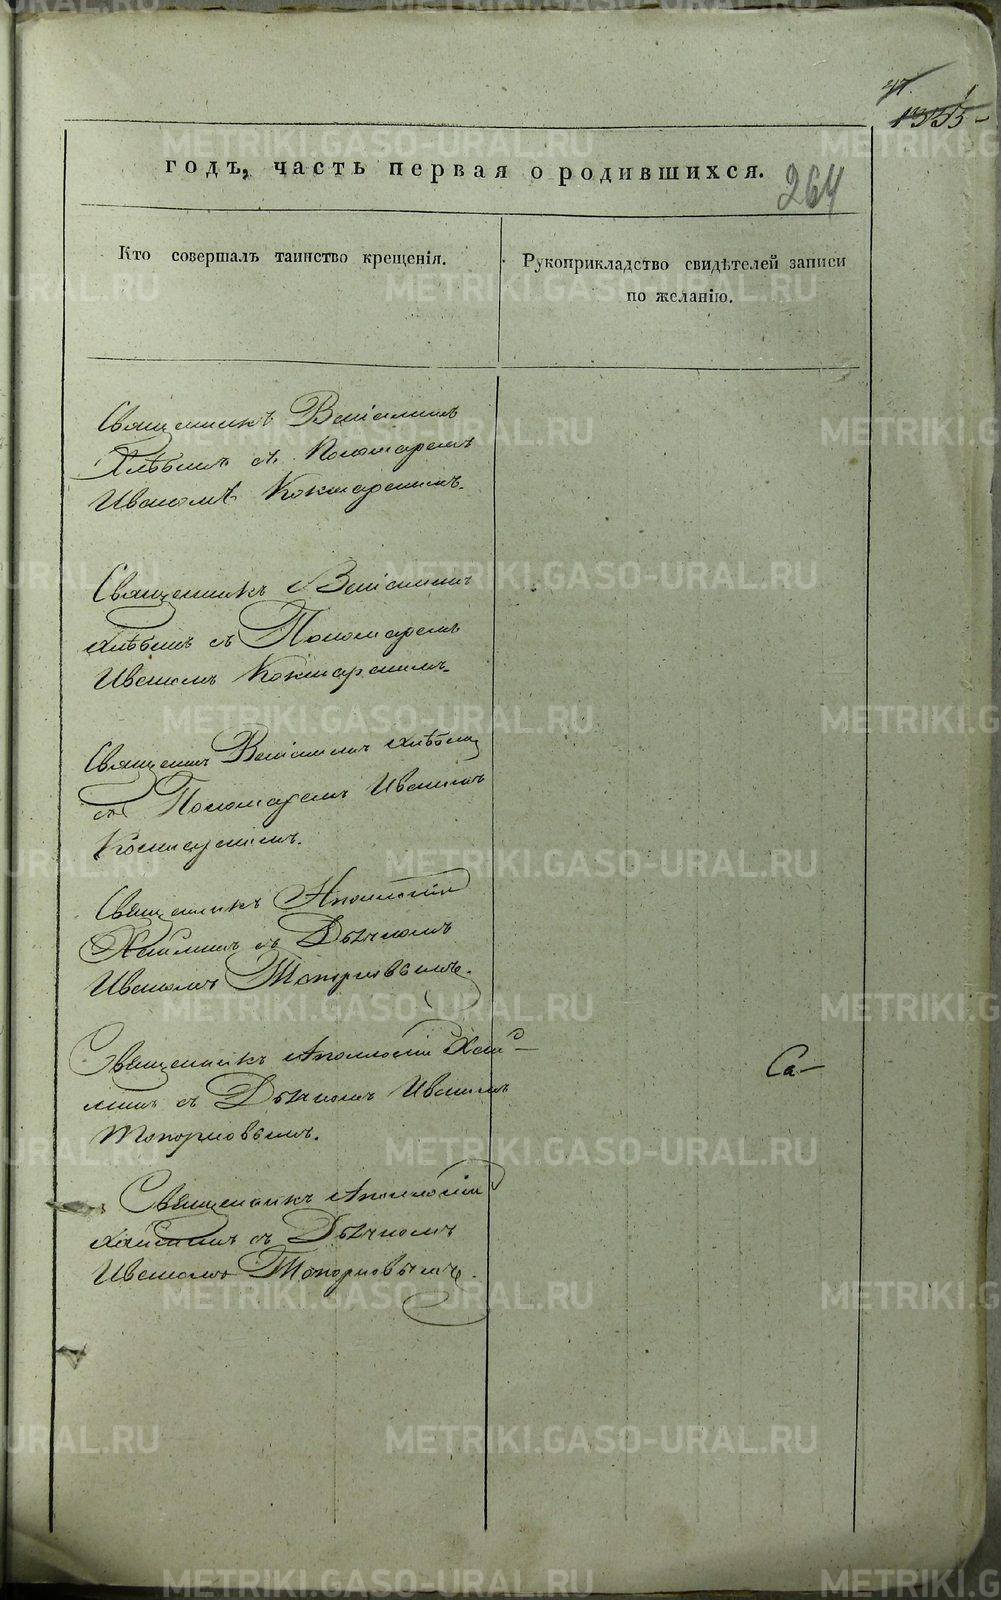 1355
годъ, часть первая о родившихся.
264
Кто совершалъ таинство крещенія.
Рукоприкладство свидѣтелей записи
по желанію.
Священникъ Веніаминъ
Хлѣбинъ съ Пономаремъ
Иваномъ Кокшарскимъ.
Священникъ Веніаминъ
Хлѣбинъ съ Пономаремъ
Иваномъ Кокшарскимъ.
Священникъ Веніаминъ Хлѣбинъ
съ Пономаремъ Иваномъ
Кокшарскимъ.
Священникъ Аполлосій
съ Дьячкомъ
Иваномъ Топорковымъ.
Священникъ Аполлосій
съ Дьячкомъ Иваномъ
Топорковымъ.
Са-
Священникъ Аполлосій
съ Дьячкомъ
Иваномъ Топорковымъ.
METRIKI.GASO-URAL.RU